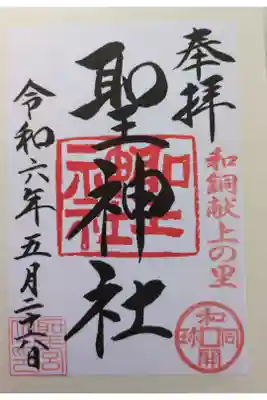 奉拝
和銅献上の里
聖神社
令和六年五月二十八日
和同開珎